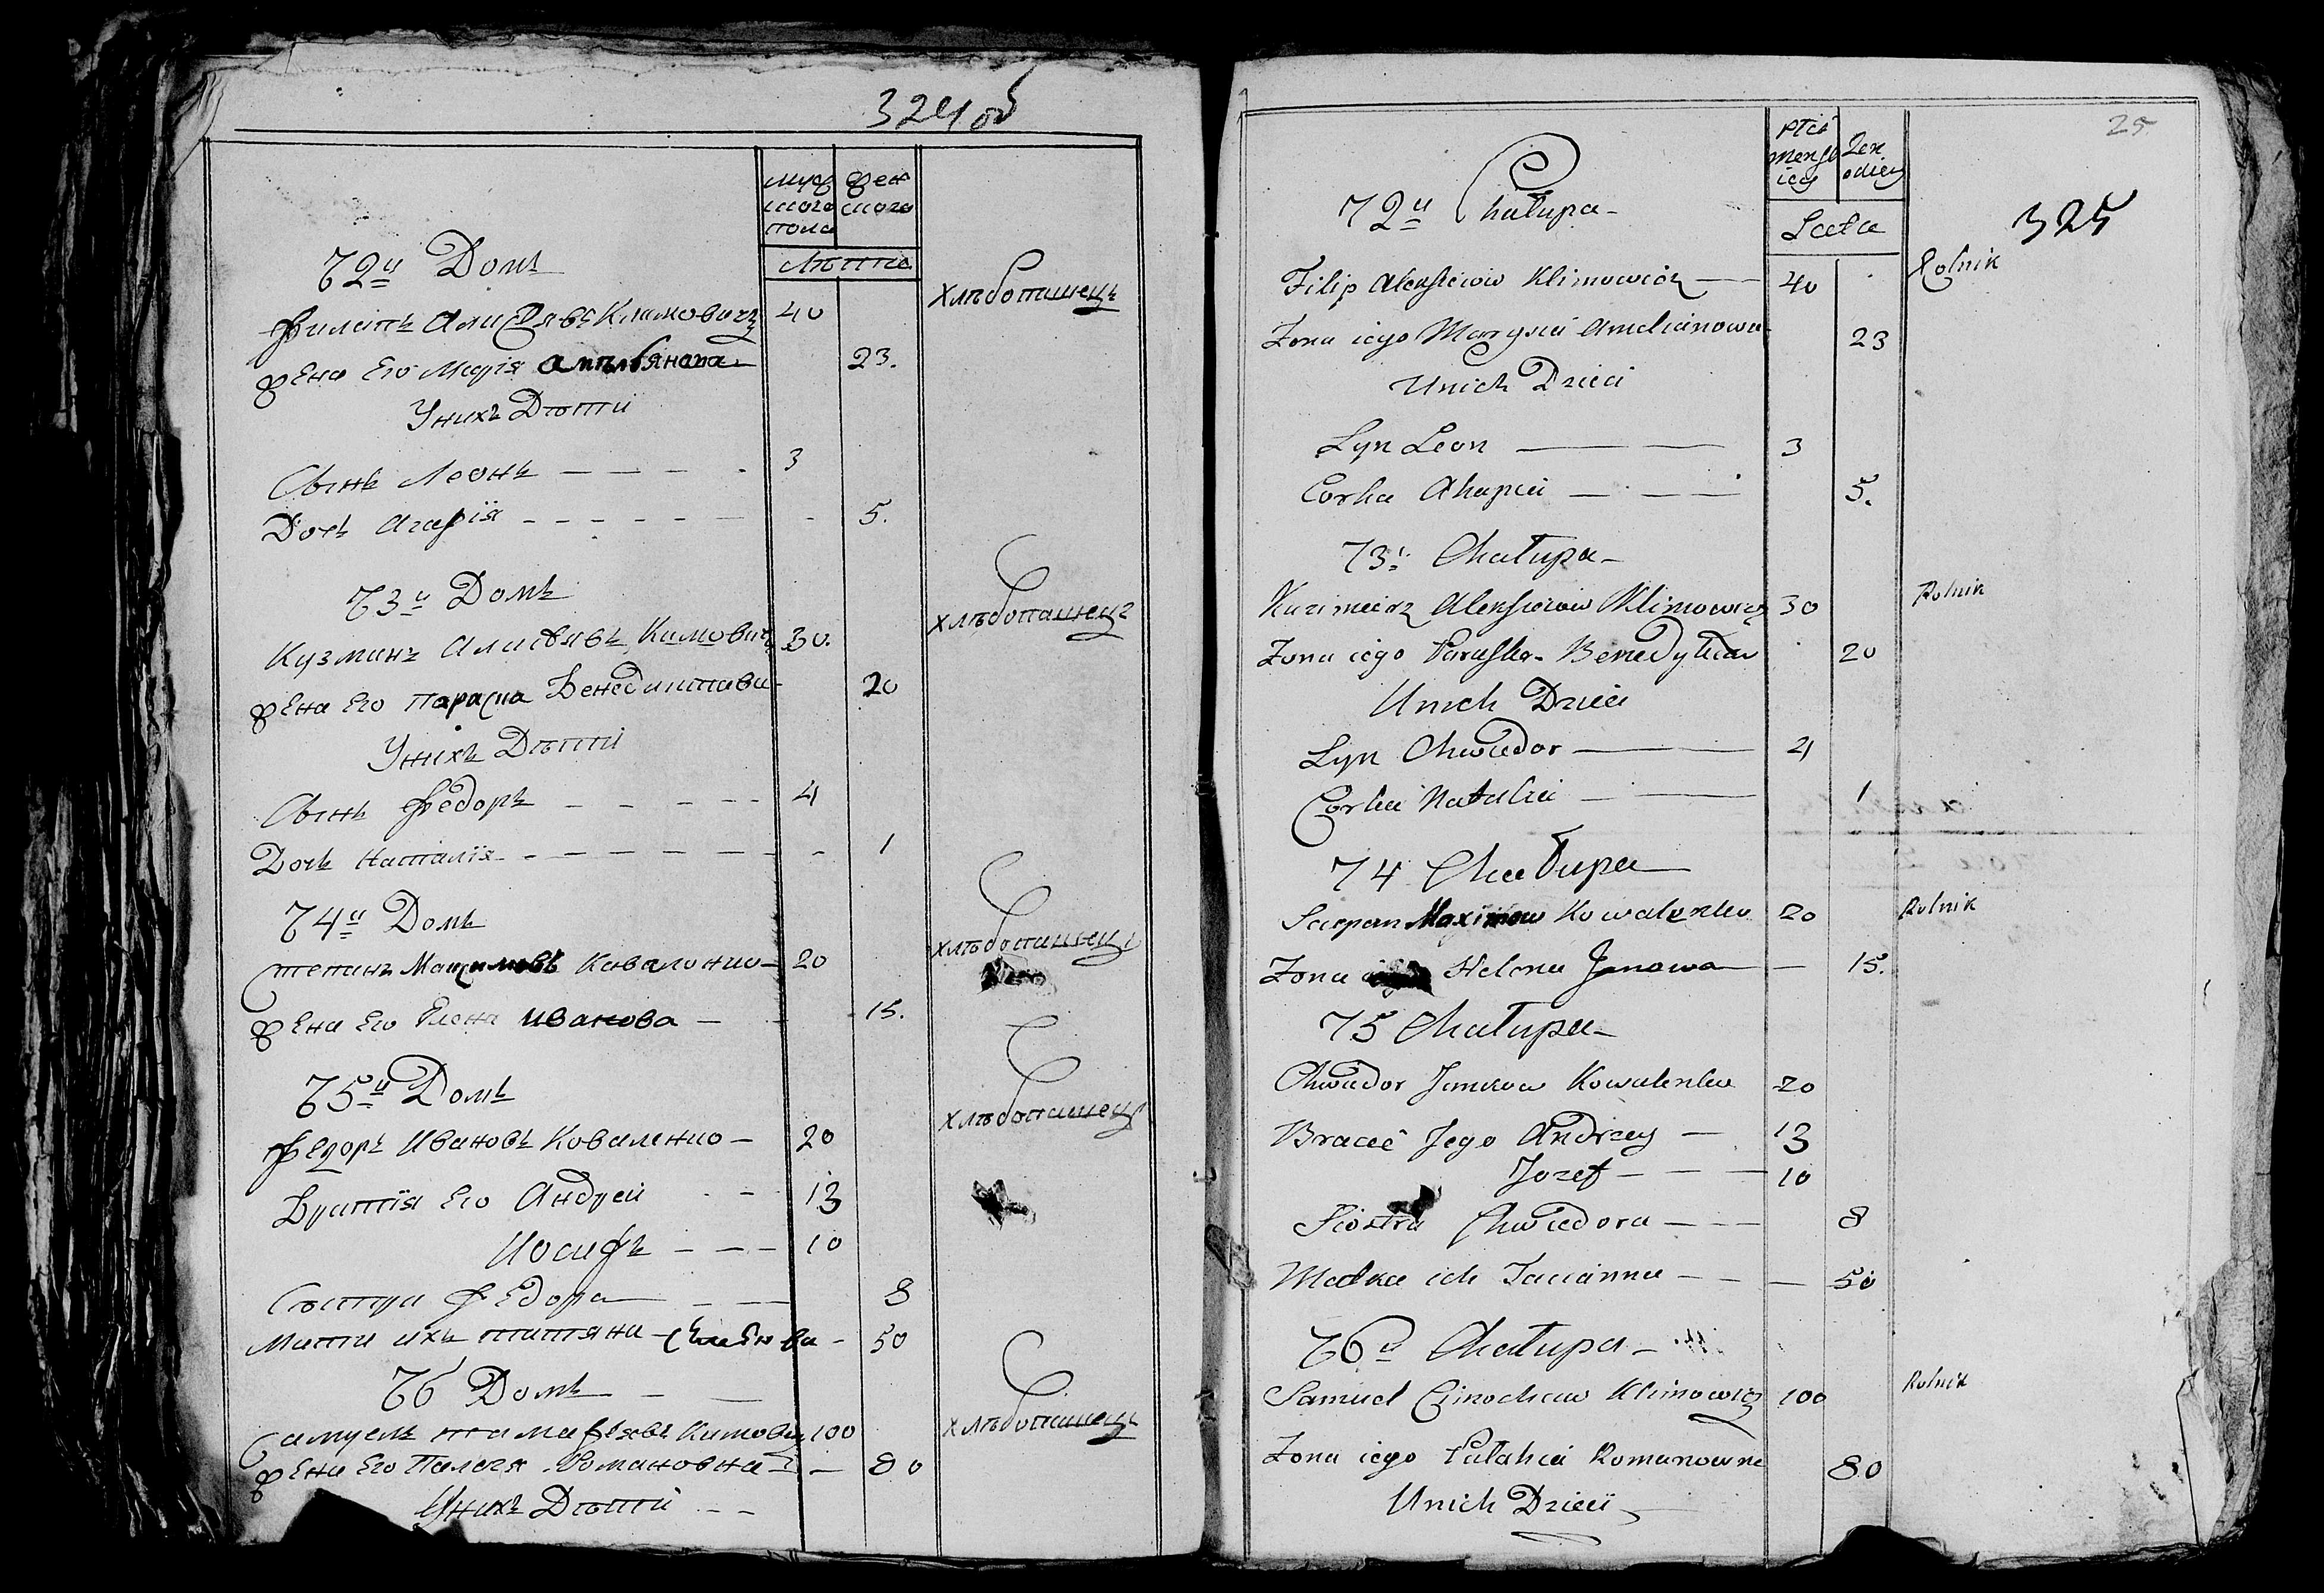 324 об
муж
ского
пола
жен
ского
Лѣта
72й Домъ
Хлѣбопашецъ
Филипъ Алисѣявъ Климовичъ 40
жена Его Марія Амельянова 23.
У нихъ Дѣти
Сынъ Леонъ — — — 3
Дочь Агафія — — — 5.
73й Домъ
Хлѣбопашецъ
Кузминъ Алисѣявъ Кимовичъ 30.
жена Его Параска Бенедиктова 20
У нихъ Дѣти
Сынъ Федоръ — — — 4
Дочь Наталія — — — 1
74й Домъ
Хлѣбопашецъ
Степанъ Максимовъ Коваленко 20
жена Его Елена Иванова — 15.
75й Домъ
Хлѣбопашецъ
Федоръ Ивановъ Коваленко — 20
Братія Его Андрей — 13
Иосифъ — — — 10
Сѣстра Федора — — 8
Мати ихъ Татяна 50
76 Домъ
Хлѣбопашецъ
Самуель Тимафѣявъ Кимовичъ 100
жена Его Палагя Романовна — 80
У нихъ Дѣти
25
325
płci
męzk
iey
Zen
skiey
Lata
72a Chałupa
Filip Alexsieiow Klimowicz — 40 Rolnik
Zona iego Marysia Amelianowa 23
Unich Dzieci
Syn Leon — 3
Corka Ahapia — 5.
73a Chałupa
Kuzimierz Alexsieiow Klimowicz 30 Rolnik
Zona iego Paraska Benedyktow 20
Unich Dzieci
Syn Chwiedor — 4
Corka Natalia — 1
74 Chałupa
Sciepan Maximow Kowalenko 20 Rolnik
Zona iego Helena Janowa — 15.
75 Chałupa
Chwiedor Janow Kowalenko 20
Bracie Jego Andrzey — 13
Jozef — — 10
Siostra Chwiedora — 8
Matka ich Tacianna — 50
76a Chałupa
Samuel Cimochow Klimowicz 100 Rolnik
Zona iego Pałahia Romanowna 80
Unich Dzieci